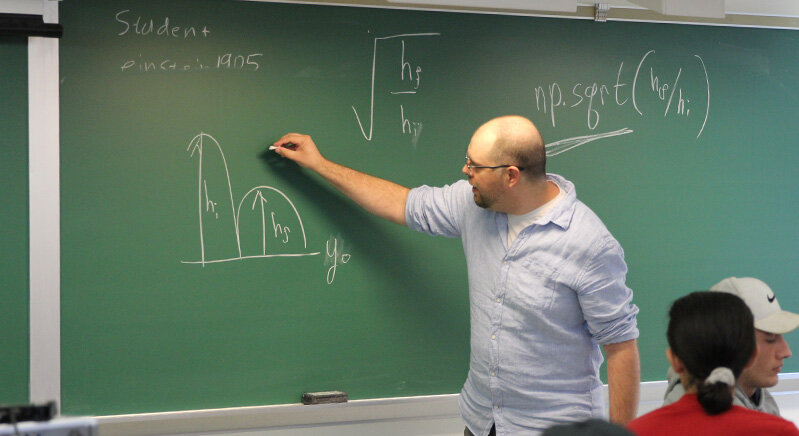 Student
einstein1905
√(h_f/h_i)
np.sqrt(h_f/h_i)
h_i
h_f
y_0